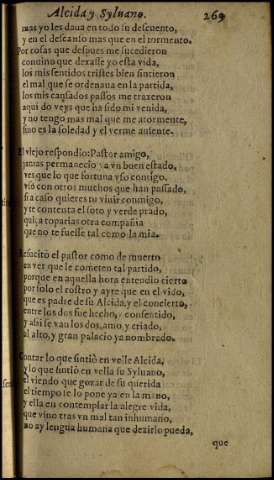 Alcida y Syluano. 269
mas yo les daua en todo su descuento,
y en el descanto mas que en el tormento.
Por cosas que despues me sucedieron
conuino que dexasse yo esta vida,
los mis sentidos tristes bien sintieron
el mal que se ordenaua en la partida,
los mis cansados passos me traxeron
aqui do veys que ha sido mi venida,
y no tengo mas mal que me atormente,
sino es la soledad y el verme ausente.
El viejo respondio: Pastor amigo,
jamas permanecio vn buen estado,
ves que lo que fortuna vso contigo,
vsó con otros muchos que han passado,
si a caso quieres tu viuir conmigo,
y te contenta el soto y verde prado,
quiça toparias otra compañia
que no te fuesse tal como la mia.
Resucitò el pastor como de muerto
en ver que le cometen tal partido,
porque en aquella hora entendio cierto
por solo el rostro y ayre que en el vido,
que es padre de su Alcida, y el concierto
entre los dos fue hecho, y consentido,
y assi se van los dos, amo, y criado,
al alto, y gran palacio ya nombrado.
Contar lo que sintiò en velle Alcida,
y lo que sintio en vella su Syluano,
el viendo que gozar de su querida
el tiempo se lo pone ya en la mano,
y ella en contemplar la alegre vida,
que vino tras vn mal tan inhumano,
no ay lengua humana que dezirlo pueda,
que